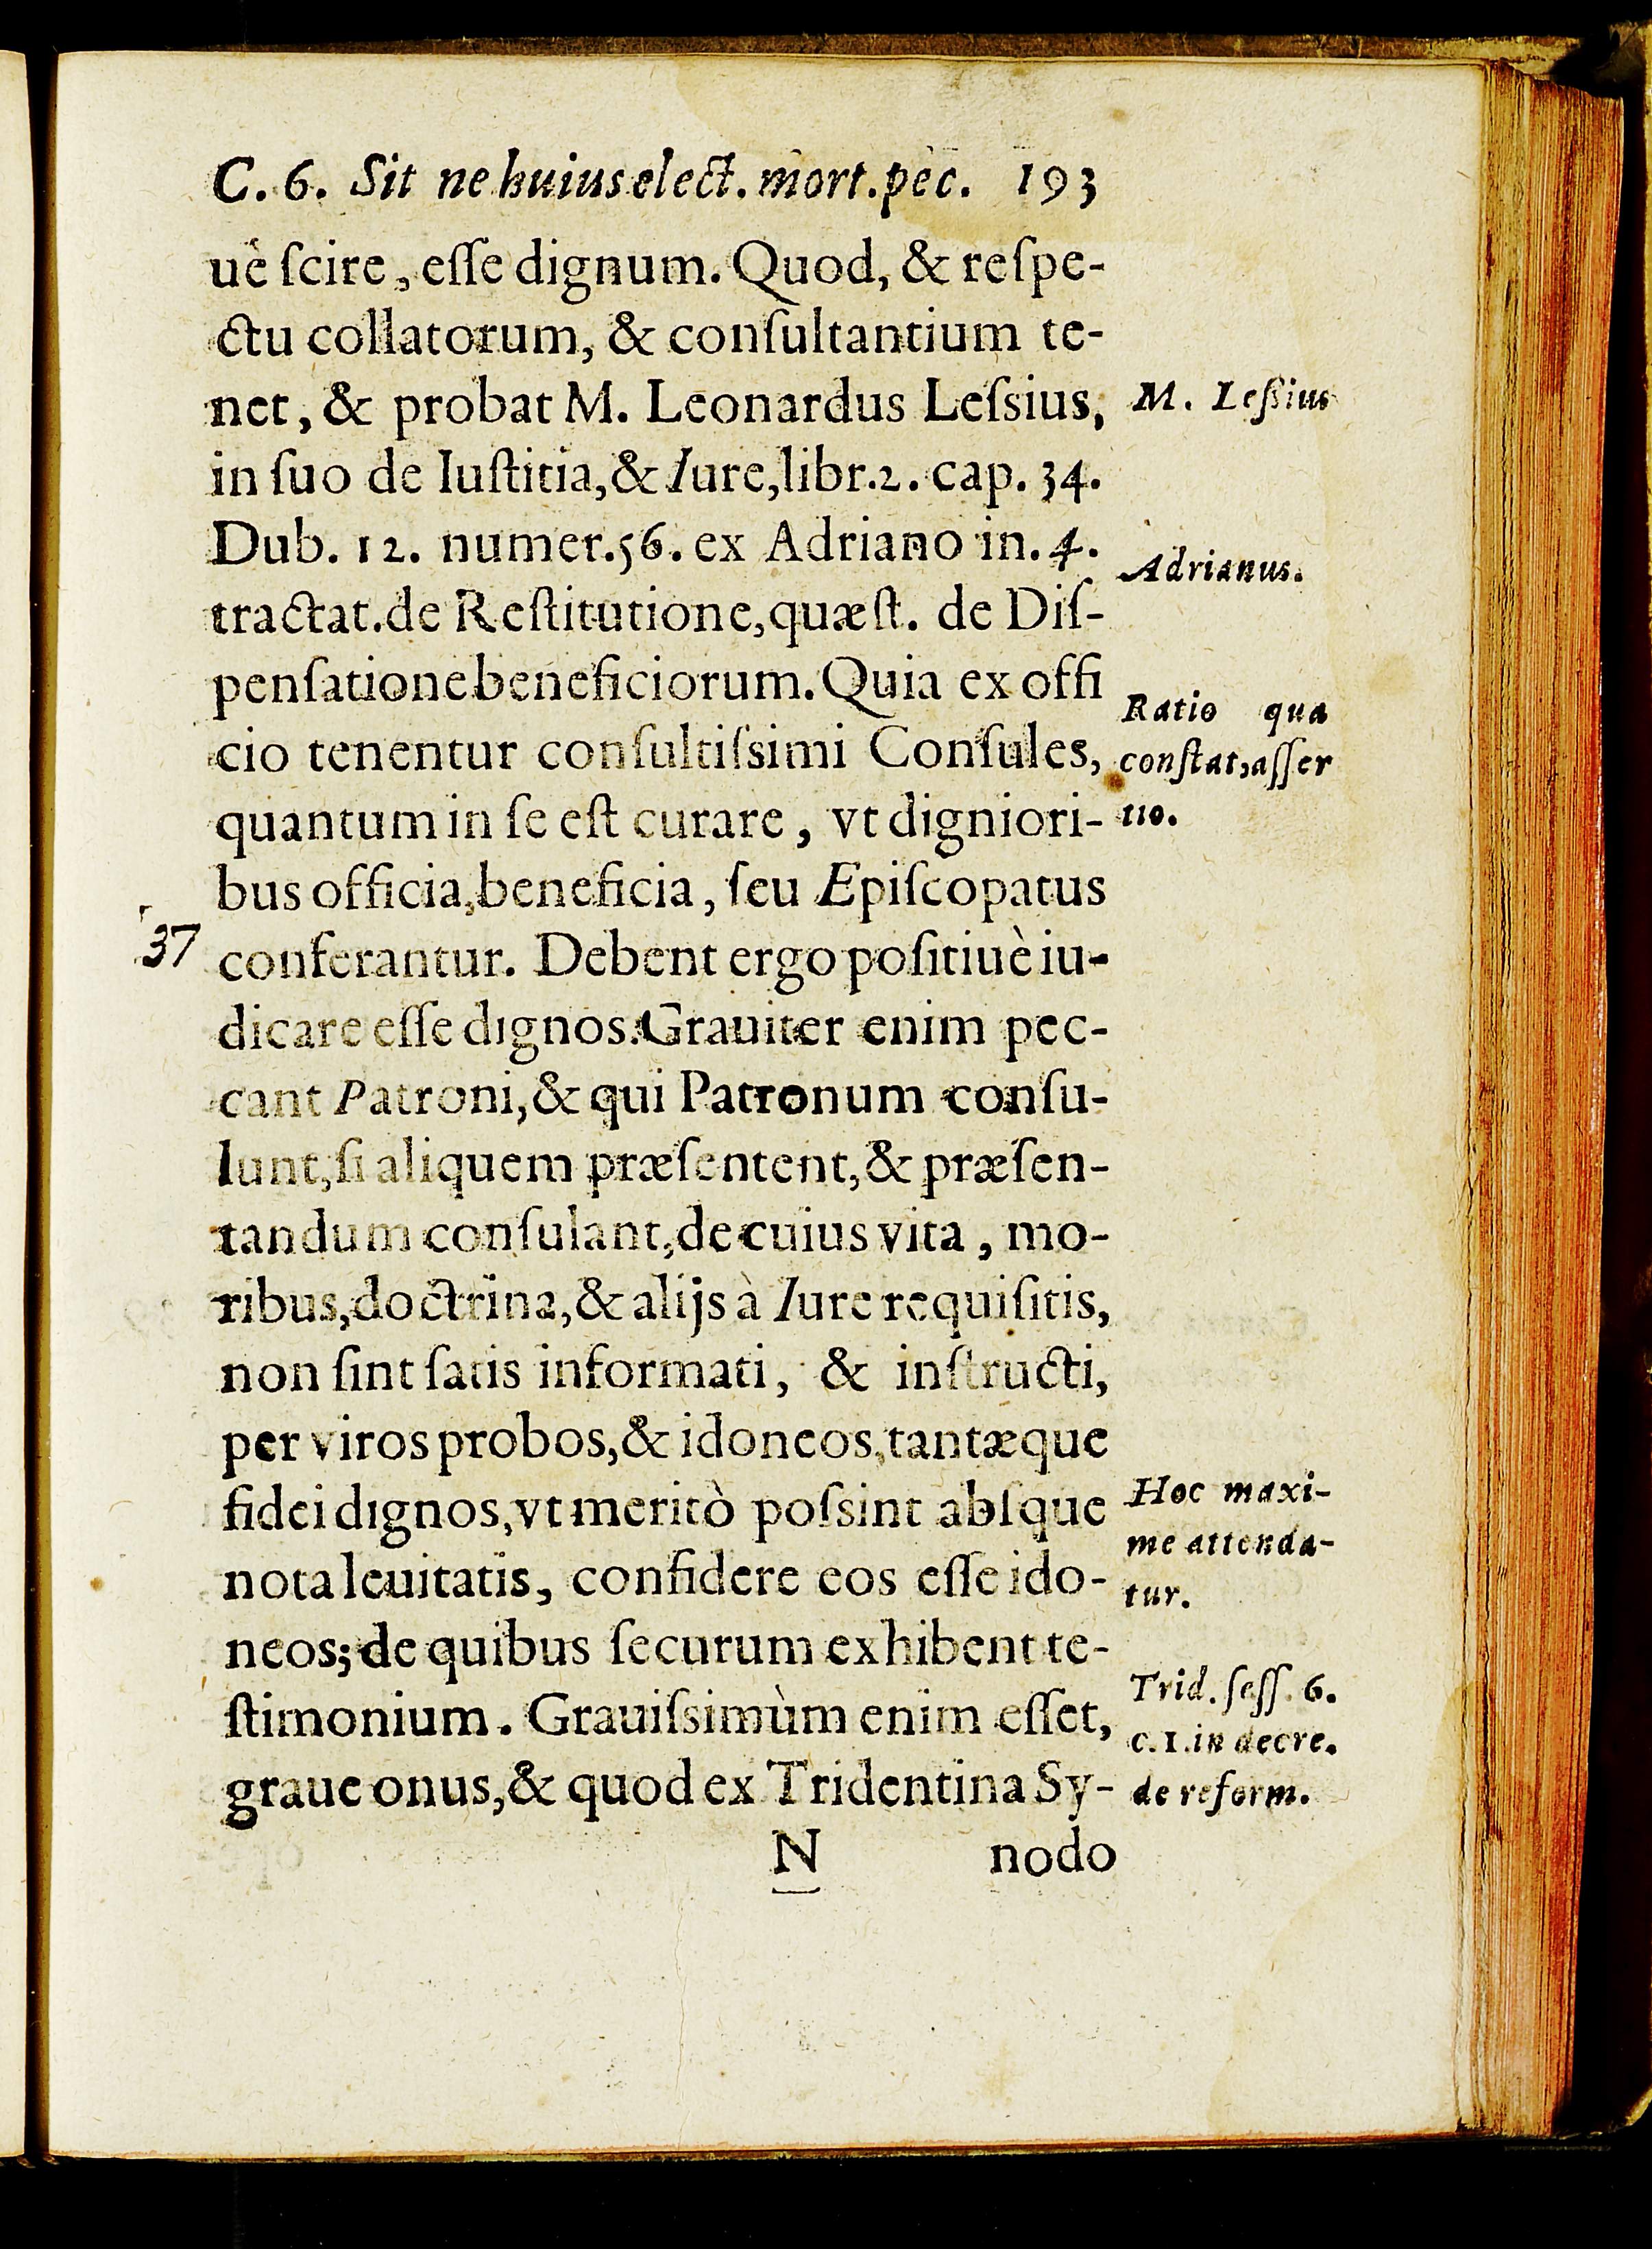 C. 6. Sit ne huius elect. mort. pec. 193
uè ſcire, eſſe dignum. Quod, & reſpe-
ctu collatorum, & conſultantium te-
net, & probat M. Leonardus Leſsius,
M. Leſsius
in ſuo de Iuſtitia, & Iure, libr. 2. cap. 34.
Dub. 12. numer. 56. ex Adriano in. 4.
Adrianus.
tractat. de Reſtitutione, quæſt. de Diſ-
penſatione beneficiorum. Quia ex offi
cio tenentur conſultiſsimi Conſules,
quantum in ſe eſt curare, vt digniori-
Ratio qua
conſtat, aſſer
tio.
bus officia, beneficia, ſeu Epiſcopatus
37
conferantur. Debent ergo poſitiuè iu-
dicare eſſe dignos. Grauiter enim pec-
cant Patroni, & qui Patronum conſu-
lunt, ſi aliquem præſentent, & præſen-
tandum conſulant, de cuius vita, mo-
ribus, doctrina, & alijs à Iure requiſitis,
non ſint ſatis informati, & inſtructi,
per viros probos, & idoneos, tantæque
fidei dignos, vt meritò poſsint abſque
nota leuitatis, confidere eos eſſe ido-
Hoc maxi-
me attenda-
tur.
neos; de quibus ſecurum exhibent te-
ſtimonium. Grauiſsimùm enim eſſet,
graue onus, & quod ex Tridentina Sy-
Trid. ſeſſ. 6.
c. 1. in decre.
de reform.
N nodo